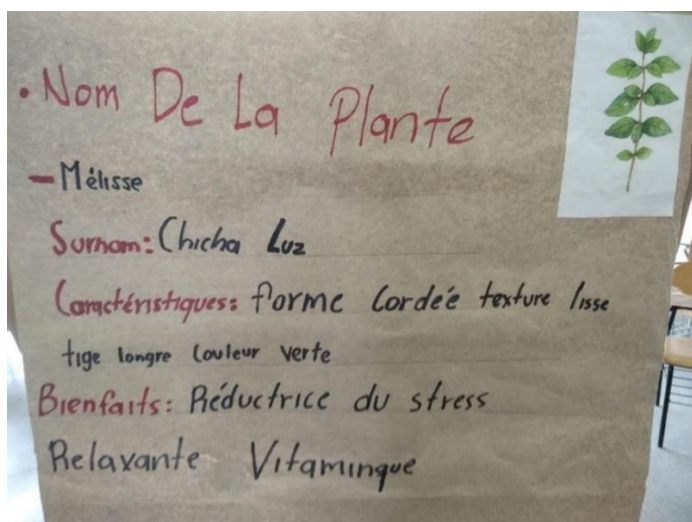 • Nom De La Plante
- Mélisse
Surnom: Chicha Luz
Caractéristiques: forme Cordeé texture lisse
tige longre Couleur verte
Bienfaits: Réductrice du stress
Relaxante Vitaminque